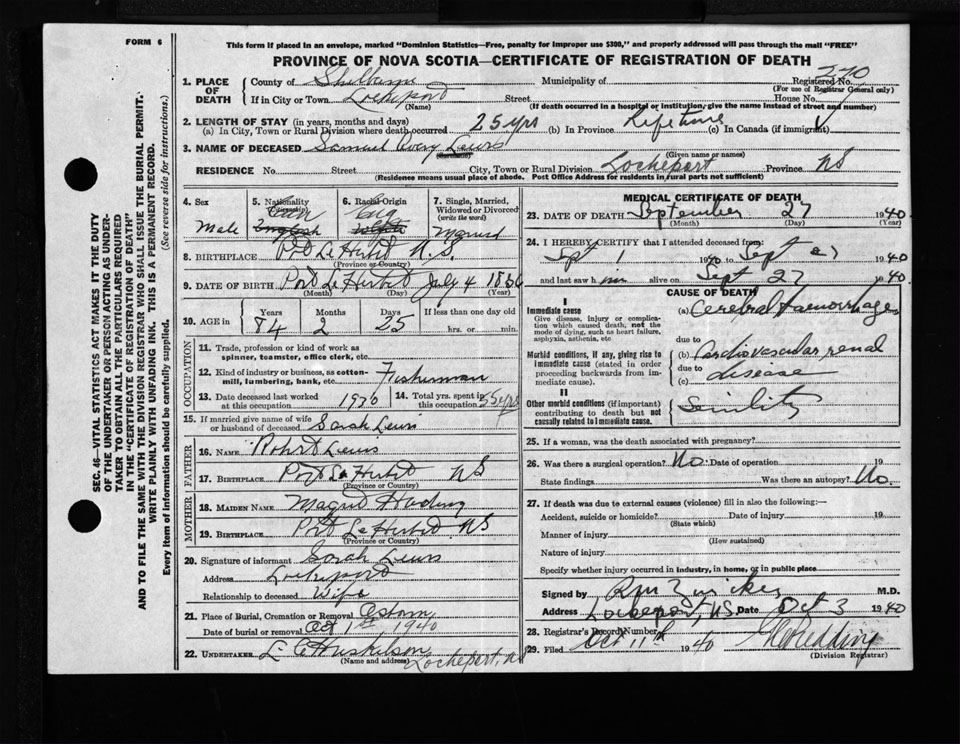 FORM 6
This form if placed in an envelope, marked "Dominion Statistics—Free, penalty for improper use $300," and properly addressed will pass through the mail "FREE"
PROVINCE OF NOVA SCOTIA—CERTIFICATE OF REGISTRATION OF DEATH
SEC. 46—VITAL STATISTICS ACT MAKES IT THE DUTY
OF THE UNDERTAKER OR PERSON ACTING AS UNDER-
TAKER TO OBTAIN ALL THE PARTICULARS REQUIRED
IN THE "CERTIFICATE OF REGISTRATION OF DEATH"
AND TO FILE THE SAME WITH THE DIVISION REGISTRAR WHO SHALL ISSUE THE BURIAL PERMIT.
WRITE PLAINLY WITH UNFADING INK. THIS IS A PERMANENT RECORD.
Every item of information should be carefully supplied. (See reverse side for instructions.)
1. PLACE OF DEATH County of Shelburne Municipality of Registered No. 270
(For use of Registrar General only)
If in City or Town Lockeport Street House No.
(Name) (If death occurred in a hospital or institution, give the name instead of street and number)
2. LENGTH OF STAY (in years, months and days)
(a) In City, Town or Rural Division where death occurred 25 yrs (b) In Province Lifetime (c) In Canada (if immigrant)
3. NAME OF DECEASED Samuel Lewis
(Surname) (Given name or names)
RESIDENCE No. Street City, Town or Rural Division Lockeport Province NS
(Residence means usual place of abode. Post Office Address for residents in rural parts not sufficient)
4. Sex Male
5. Nationality (Citizenship) Can English
6. Racial Origin Eng
7. Single, Married, Widowed or Divorced (write the word) Married
8. BIRTHPLACE Port Le Hebert N.S.
(Province or Country)
9. DATE OF BIRTH Port Le Hebert July 4 1856
(Month) (Day) (Year)
10. AGE in Years 84 Months 2 Days 25 If less than one day old hrs. or min.
OCCUPATION
11. Trade, profession or kind of work as spinner, teamster, office clerk, etc.
12. Kind of industry or business, as cotton-mill, lumbering, bank, etc. Fisherman
13. Date deceased last worked at this occupation 1920
14. Total yrs. spent in this occupation 55 yrs
15. If married give name of wife or husband of deceased Sarah Lewis
FATHER
16. NAME Robert Lewis
17. BIRTHPLACE Port Le Hebert NS
(Province or Country)
MOTHER
18. MAIDEN NAME Harding
19. BIRTHPLACE Port Le Hebert NS
(Province or Country)
20. Signature of informant Sarah Lewis
Address Lockeport
Relationship to deceased Wife
21. Place of Burial, Cremation or Removal
Date of burial or removal Oct 1st 1940
22. UNDERTAKER L C Huskilson
(Name and address) Lockeport, NS
MEDICAL CERTIFICATE OF DEATH
23. DATE OF DEATH September 27 1940
(Month) (Day) (Year)
24. I HEREBY CERTIFY that I attended deceased from:
Sept 1 1940 to Sept 27 1940
and last saw him alive on Sept 27 1940
CAUSE OF DEATH
I
Immediate cause
Give disease, injury or complication which caused death, not the mode of dying, such as heart failure, asphyxia, asthenia, etc
(a) Cerebral Haemorrhage
due to
Morbid conditions, if any, giving rise to immediate cause (stated in order proceeding backwards from immediate cause).
(b) Cardiovascular renal
due to
(c) disease
II
Other morbid conditions (if important) contributing to death but not causally related to immediate cause.
Senility
25. If a woman, was the death associated with pregnancy?
26. Was there a surgical operation? No. Date of operation 19
State findings Was there an autopsy? No.
27. If death was due to external causes (violence) fill in also the following:—
Accident, suicide or homicide? Date of injury 19
(State which)
Manner of injury
(How sustained)
Nature of injury
Specify whether injury occurred in industry, in home, or in public place
Signed by M.D.
Address Lockeport, N.S. Date Oct 3 1940
28. Registrar's Record Number
29. Filed Oct 11th 1940
(Division Registrar)